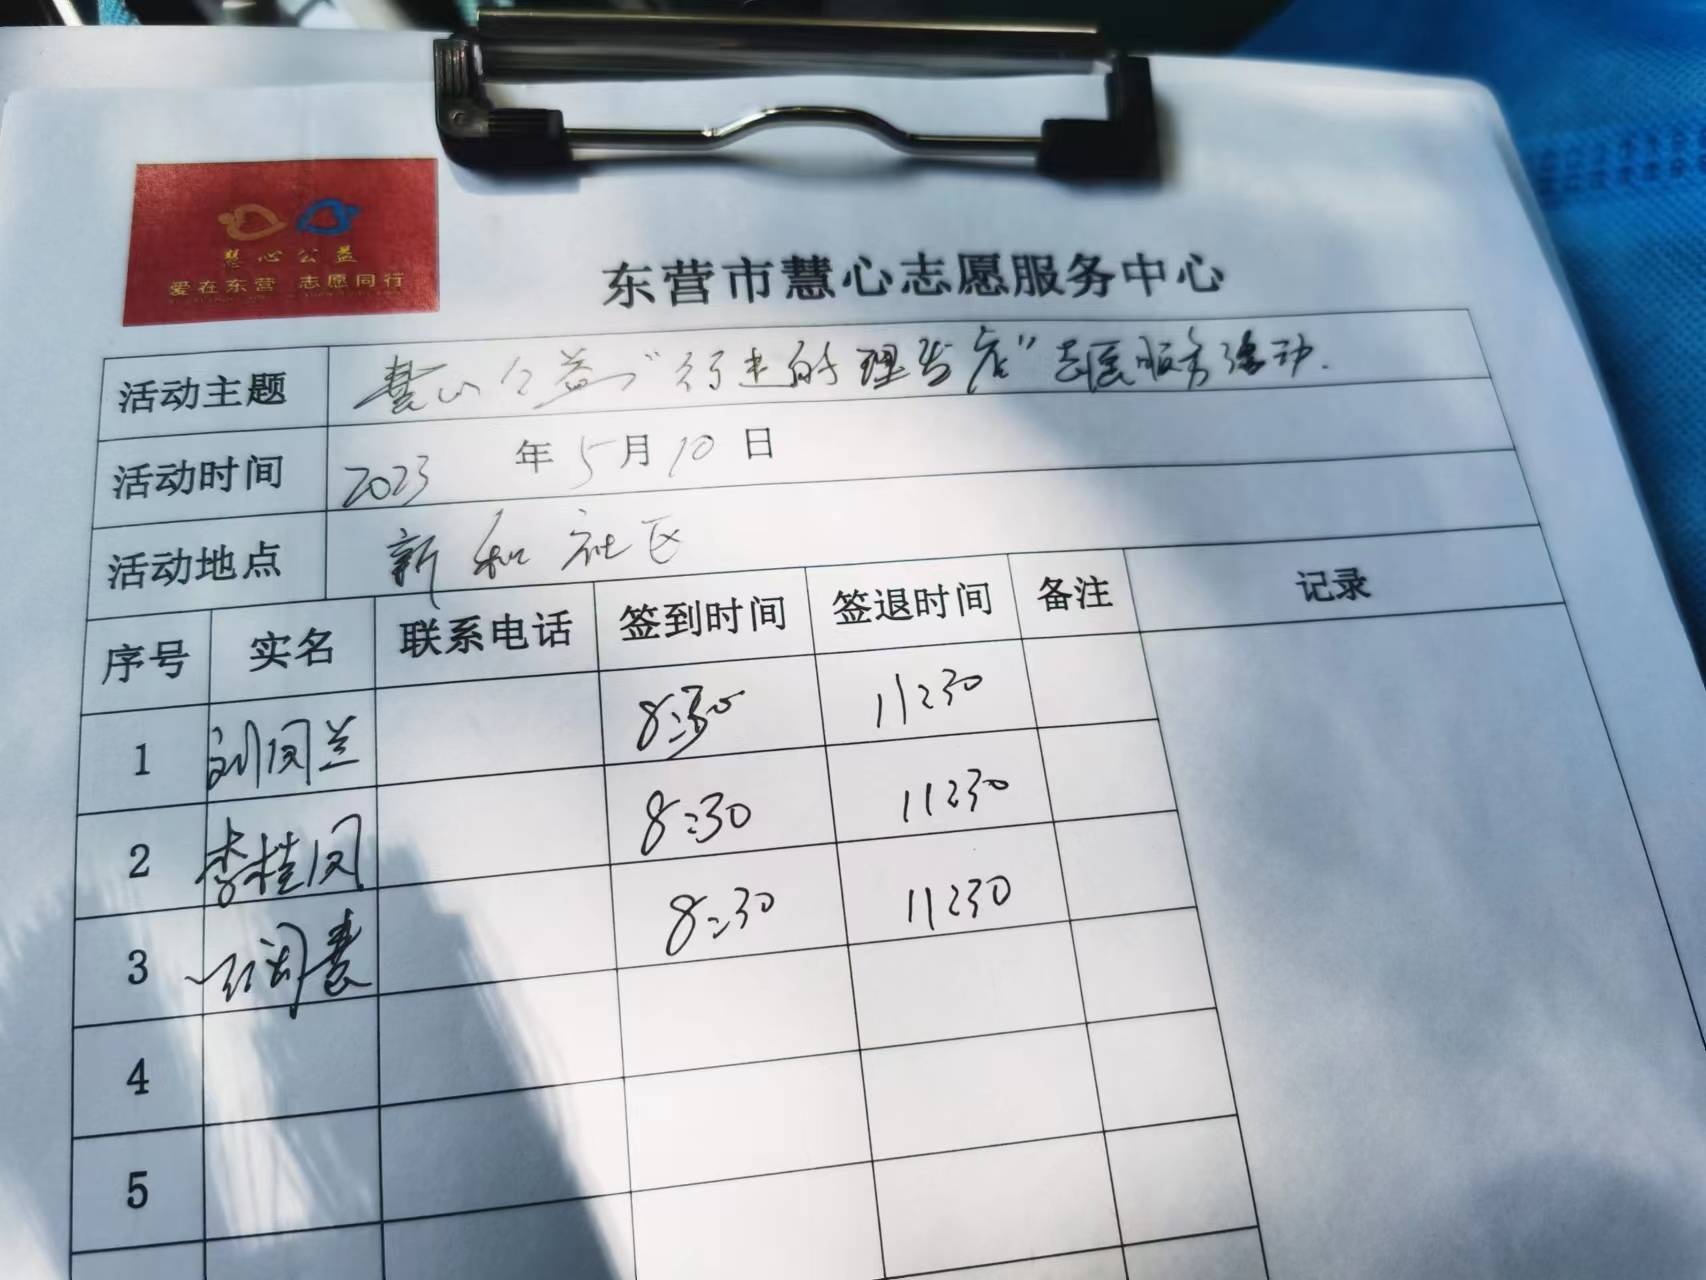 慧心公益
爱在东营 志愿同行
东营市慧心志愿服务中心
活动主题 慧心公益"行走的理发店"志愿服务活动.
活动时间 2023 年 5 月 10 日
活动地点 新和社区
序号 实名 联系电话 签到时间 签退时间 备注 记录
1 刘同兰 8:30 11:30
2 李桂凤 8:30 11:30
3 8:30 11:30
4
5